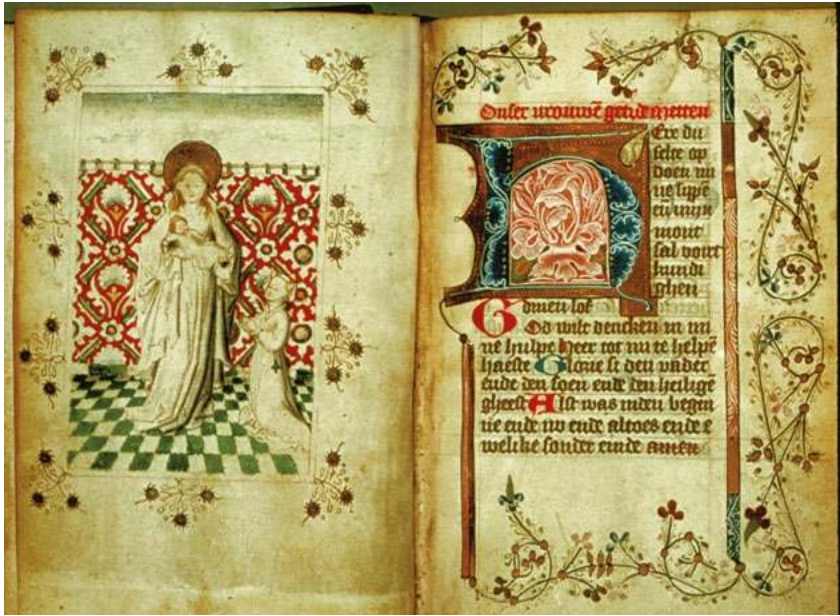 Onser vrouwē getide metten
Here du
selte op
doen mi
ne lippē
eñ mijn
mont
sal voirt
kundi
ghen
dinen lof
God wilt dencken in mi
ne hulpe Heer tot mi te helpē
haeste Glorie si den vader
ende den soen ende den heilighē
gheest Alst was inden begen
ne ende nv ende altoes ende e
welike sonder einde amen